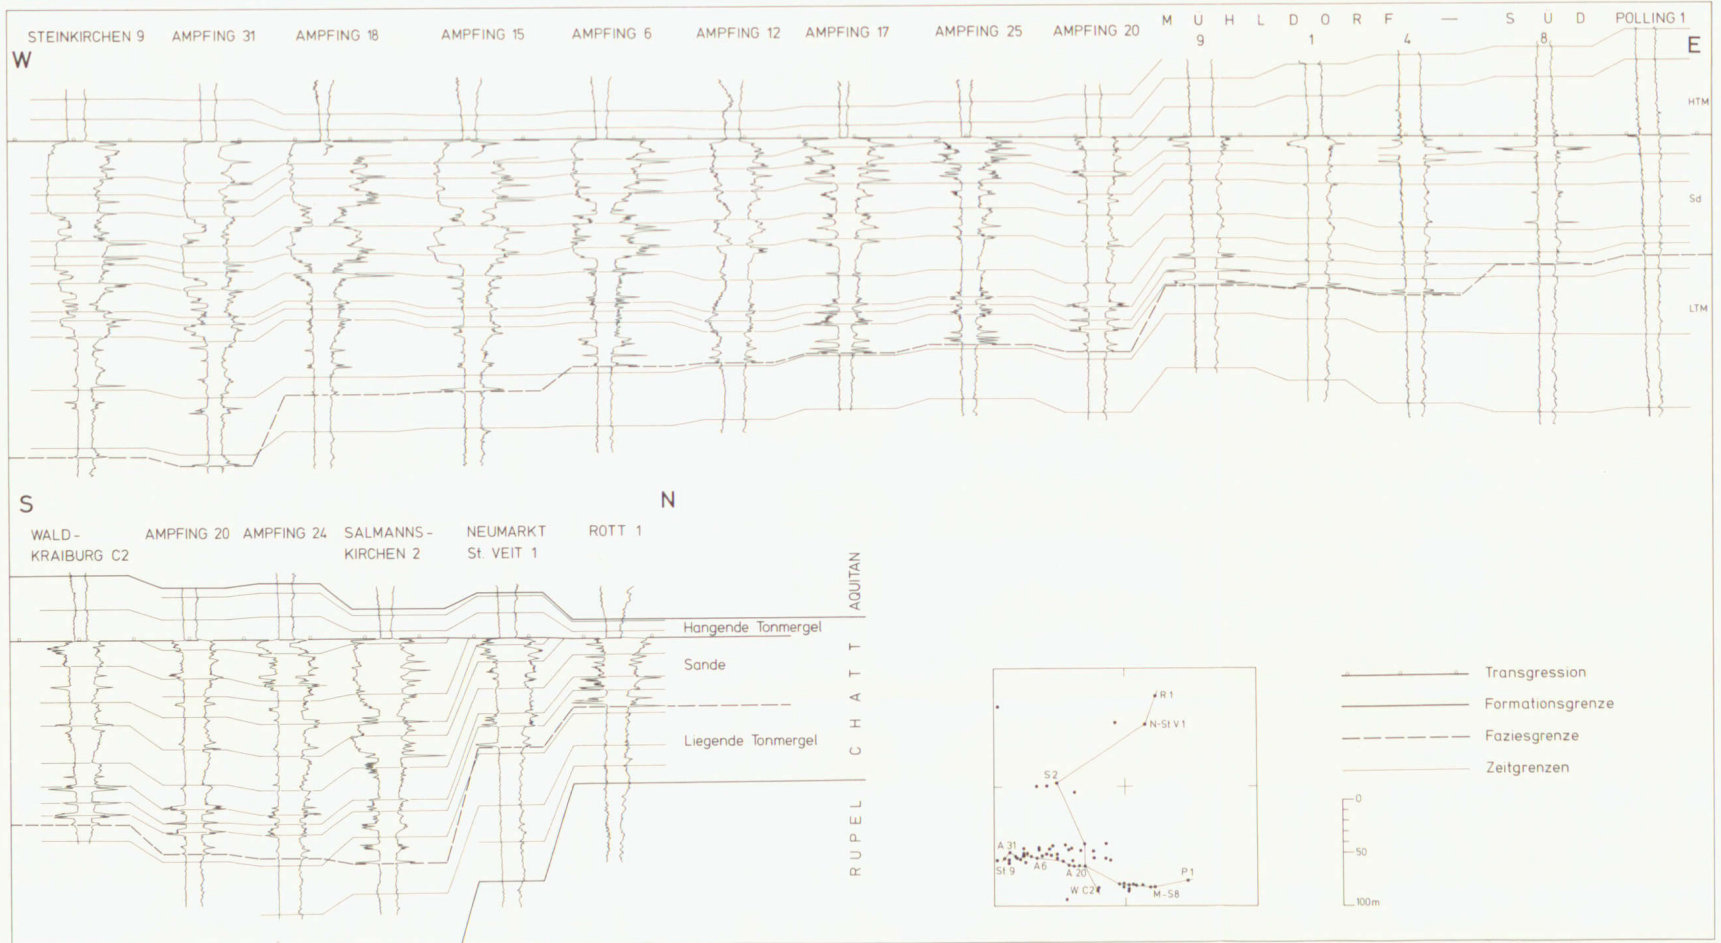 STEINKIRCHEN 9 AMPFING 31 AMPFING 18 AMPFING 15 AMPFING 6 AMPFING 12 AMPFING 17 AMPFING 25 AMPFING 20 MÜHLDORF — SÜD POLLING 1
9 1 4 8
W E
HTM
Sd
LTM
S N
WALD-
KRAIBURG C2
AMPFING 20
AMPFING 24
SALMANNS-
KIRCHEN 2
NEUMARKT
St. VEIT 1
ROTT 1
AQUITAN
CHATT
RUPEL
Hangende Tonmergel
Sande
Liegende Tonmergel
R 1
N-St.V.1
S 2
A 31
St.9
A 6
A 20
W C2
M-S8
P 1
Transgression
Formationsgrenze
Faziesgrenze
Zeitgrenzen
0
50
100m